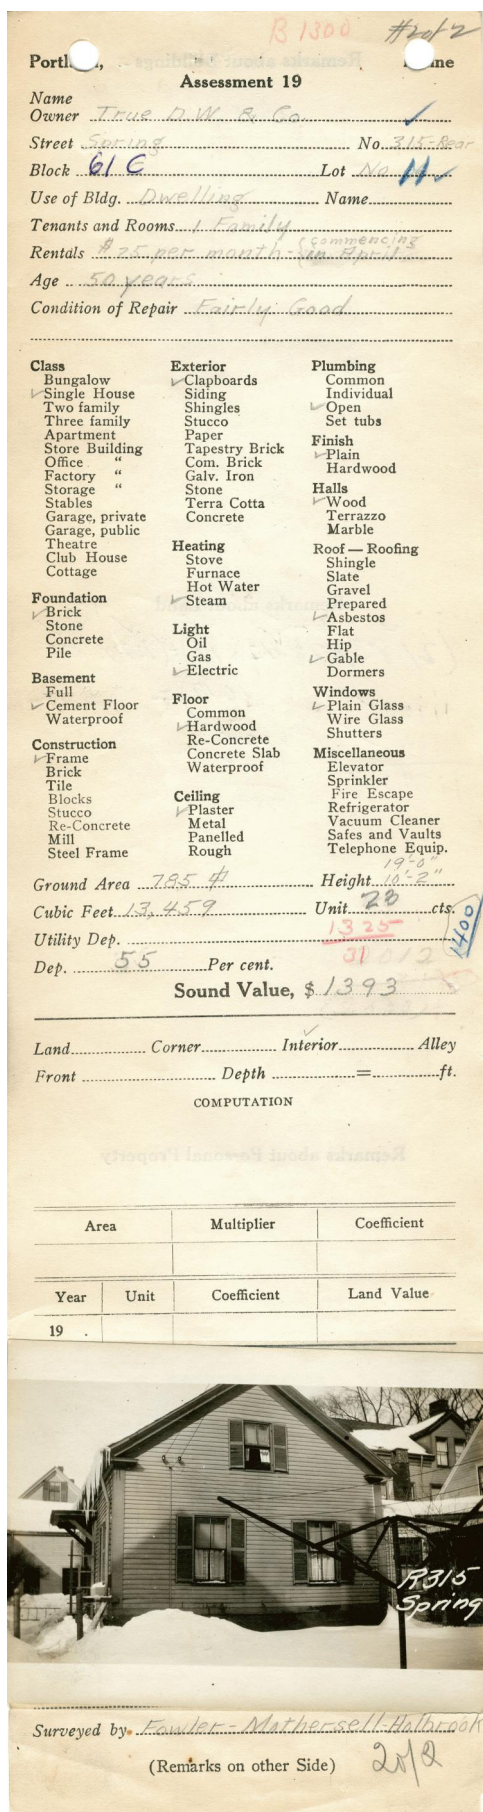 B 1300 #2 of 2
Portl , ine
Assessment 19
Name
Owner True D. W. & Co.
Street Spring No. 315-Rear
Block 61 C Lot No. 11
Use of Bldg. Dwelling Name
Tenants and Rooms 1 Family
Rentals $25 per month - (commencing
in April)
Age 50 years
Condition of Repair Fairly Good
Class
Bungalow
Single House
Two family
Three family
Apartment
Store Building
Office "
Factory "
Storage "
Stables
Garage, private
Garage, public
Theatre
Club House
Cottage
Foundation
Brick
Stone
Concrete
Pile
Basement
Full
Cement Floor
Waterproof
Construction
Frame
Brick
Tile
Blocks
Stucco
Re-Concrete
Mill
Steel Frame
Exterior
Clapboards
Siding
Shingles
Stucco
Paper
Tapestry Brick
Com. Brick
Galv. Iron
Stone
Terra Cotta
Concrete
Heating
Stove
Furnace
Hot Water
Steam
Light
Oil
Gas
Electric
Floor
Common
Hardwood
Re-Concrete
Concrete Slab
Waterproof
Ceiling
Plaster
Metal
Panelled
Rough
Plumbing
Common
Individual
Open
Set tubs
Finish
Plain
Hardwood
Halls
Wood
Terrazzo
Marble
Roof — Roofing
Shingle
Slate
Gravel
Prepared
Asbestos
Flat
Hip
Gable
Dormers
Windows
Plain Glass
Wire Glass
Shutters
Miscellaneous
Elevator
Sprinkler
Fire Escape
Refrigerator
Vacuum Cleaner
Safes and Vaults
Telephone Equip.
19'-0"
Ground Area 785 Height 10'-2"
Cubic Feet 13,459 Unit 23 cts.
Utility Dep. 1325 1400
31
Dep. 55 Per cent.
Sound Value, $ 1393
Land Corner Interior Alley
Front Depth = ft.
COMPUTATION
Area Multiplier Coefficient
Year Unit Coefficient Land Value
19 .
R315
Spring
Surveyed by Fowler - Mothersell - Holbrook
(Remarks on other Side) 2 of 2